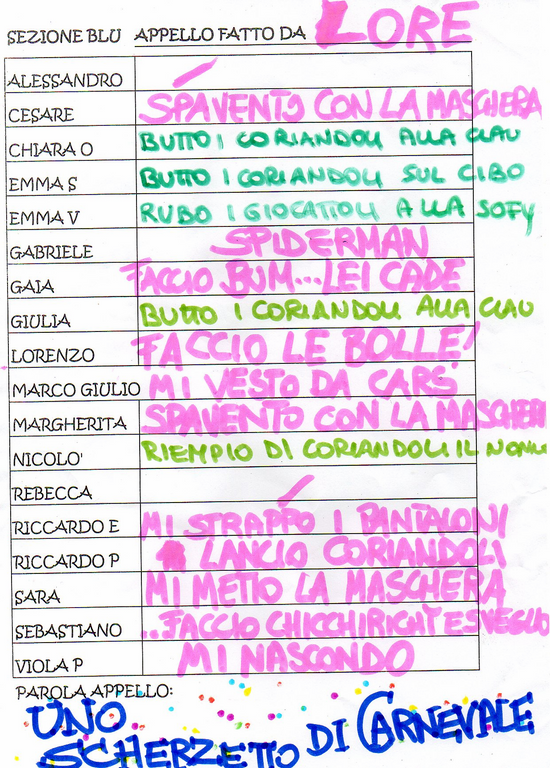 SEZIONE BLU APPELLO FATTO DA LORE
ALESSANDRO /
CESARE SPAVENTO CON LA MASCHERA
CHIARA O BUTTO I CORIANDOLI ALLA CLAU
EMMA S BUTTO I CORIANDOLI SUL CIBO
EMMA V RUBO I GIOCATTOLI ALLA SOFY
GABRIELE SPIDERMAN
GAIA FACCIO BUM...LEI CADE
GIULIA BUTTO I CORIANDOLI ALLA CLAU
LORENZO FACCIO LE BOLLE!
MARCO GIULIO MI VESTO DA CARS
MARGHERITA SPAVENTO CON LA MASCHERA
NICOLO' RIEMPIO DI CORIANDOLI IL NONNO
REBECCA /
RICCARDO E MI STRAPPO I PANTALONI
RICCARDO P LANCIO CORIANDOLI
SARA MI METTO LA MASCHERA
SEBASTIANO ...FACCIO CHICCHIRICHI' E SVEGLIO
VIOLA P MI NASCONDO
PAROLA APPELLO:
UNO
SCHERZETTO DI CARNEVALE